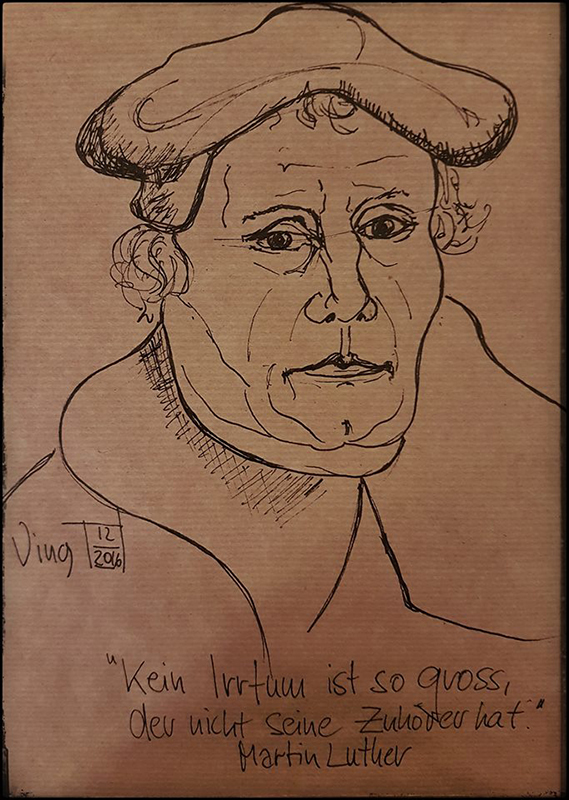 Ving 12
2016
"Kein Irrtum ist so gross,
der nicht seine Zuhörer hat."
Martin Luther